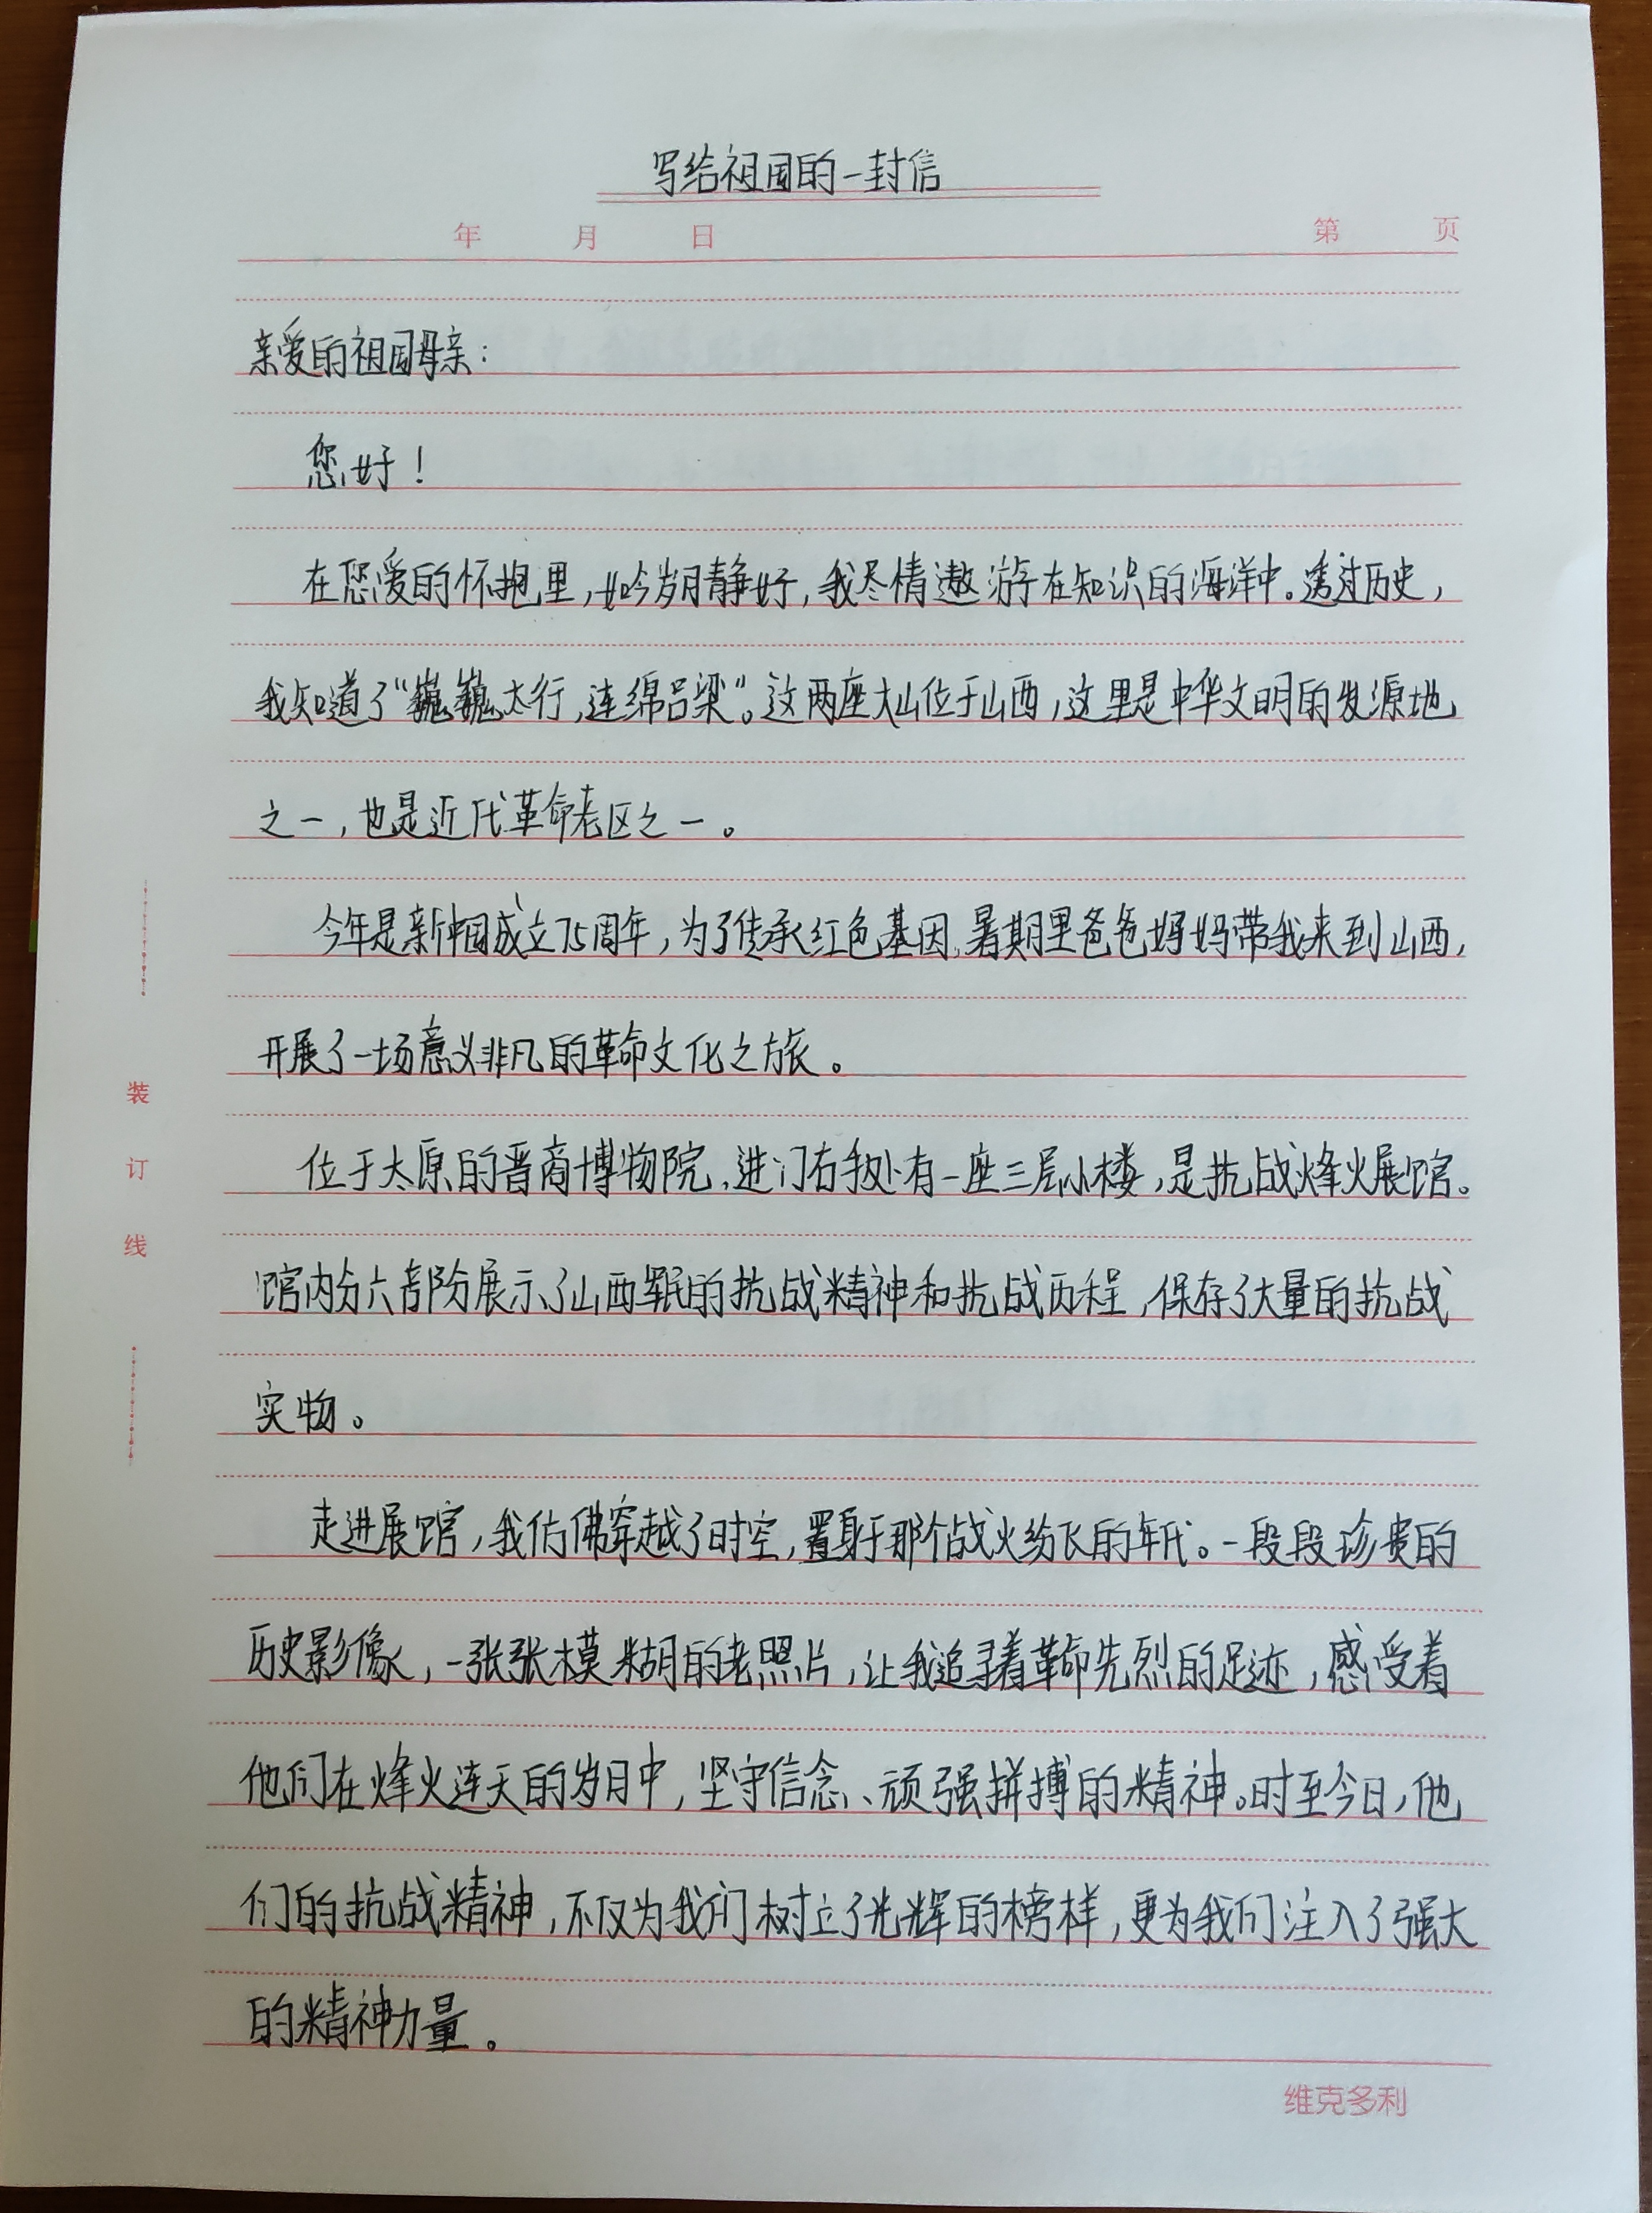 写给祖国的一封信
年 月 日 第 页
亲爱的祖国母亲：
您好！
在您爱的怀抱里，如今岁月静好，我尽情遨游在知识的海洋中。透过历史，
我知道了“巍巍太行，连绵吕梁”。这两座大山位于山西，这里是中华文明的发源地
之一，也是近代革命老区之一。
今年是新中国成立75周年，为了传承红色基因，暑期里爸爸妈妈带我来到山西，
开展了一场意义非凡的革命文化之旅。
位于太原的晋商博物院，进门右手处有一座三层小楼，是抗战烽火展馆。
馆内分六部分展示了山西军民的抗战精神和抗战历程，保存了大量的抗战
实物。
走进展馆，我仿佛穿越了时空，置身于那个战火纷飞的年代。一段段珍贵的
历史影像，一张张模糊的老照片，让我追寻着革命先烈的足迹，感受着
他们在烽火连天的岁月中，坚守信念、顽强拼搏的精神。时至今日，他
们的抗战精神，不仅为我们树立了光辉的榜样，更为我们注入了强大
的精神力量。
装
订
线
维克多利